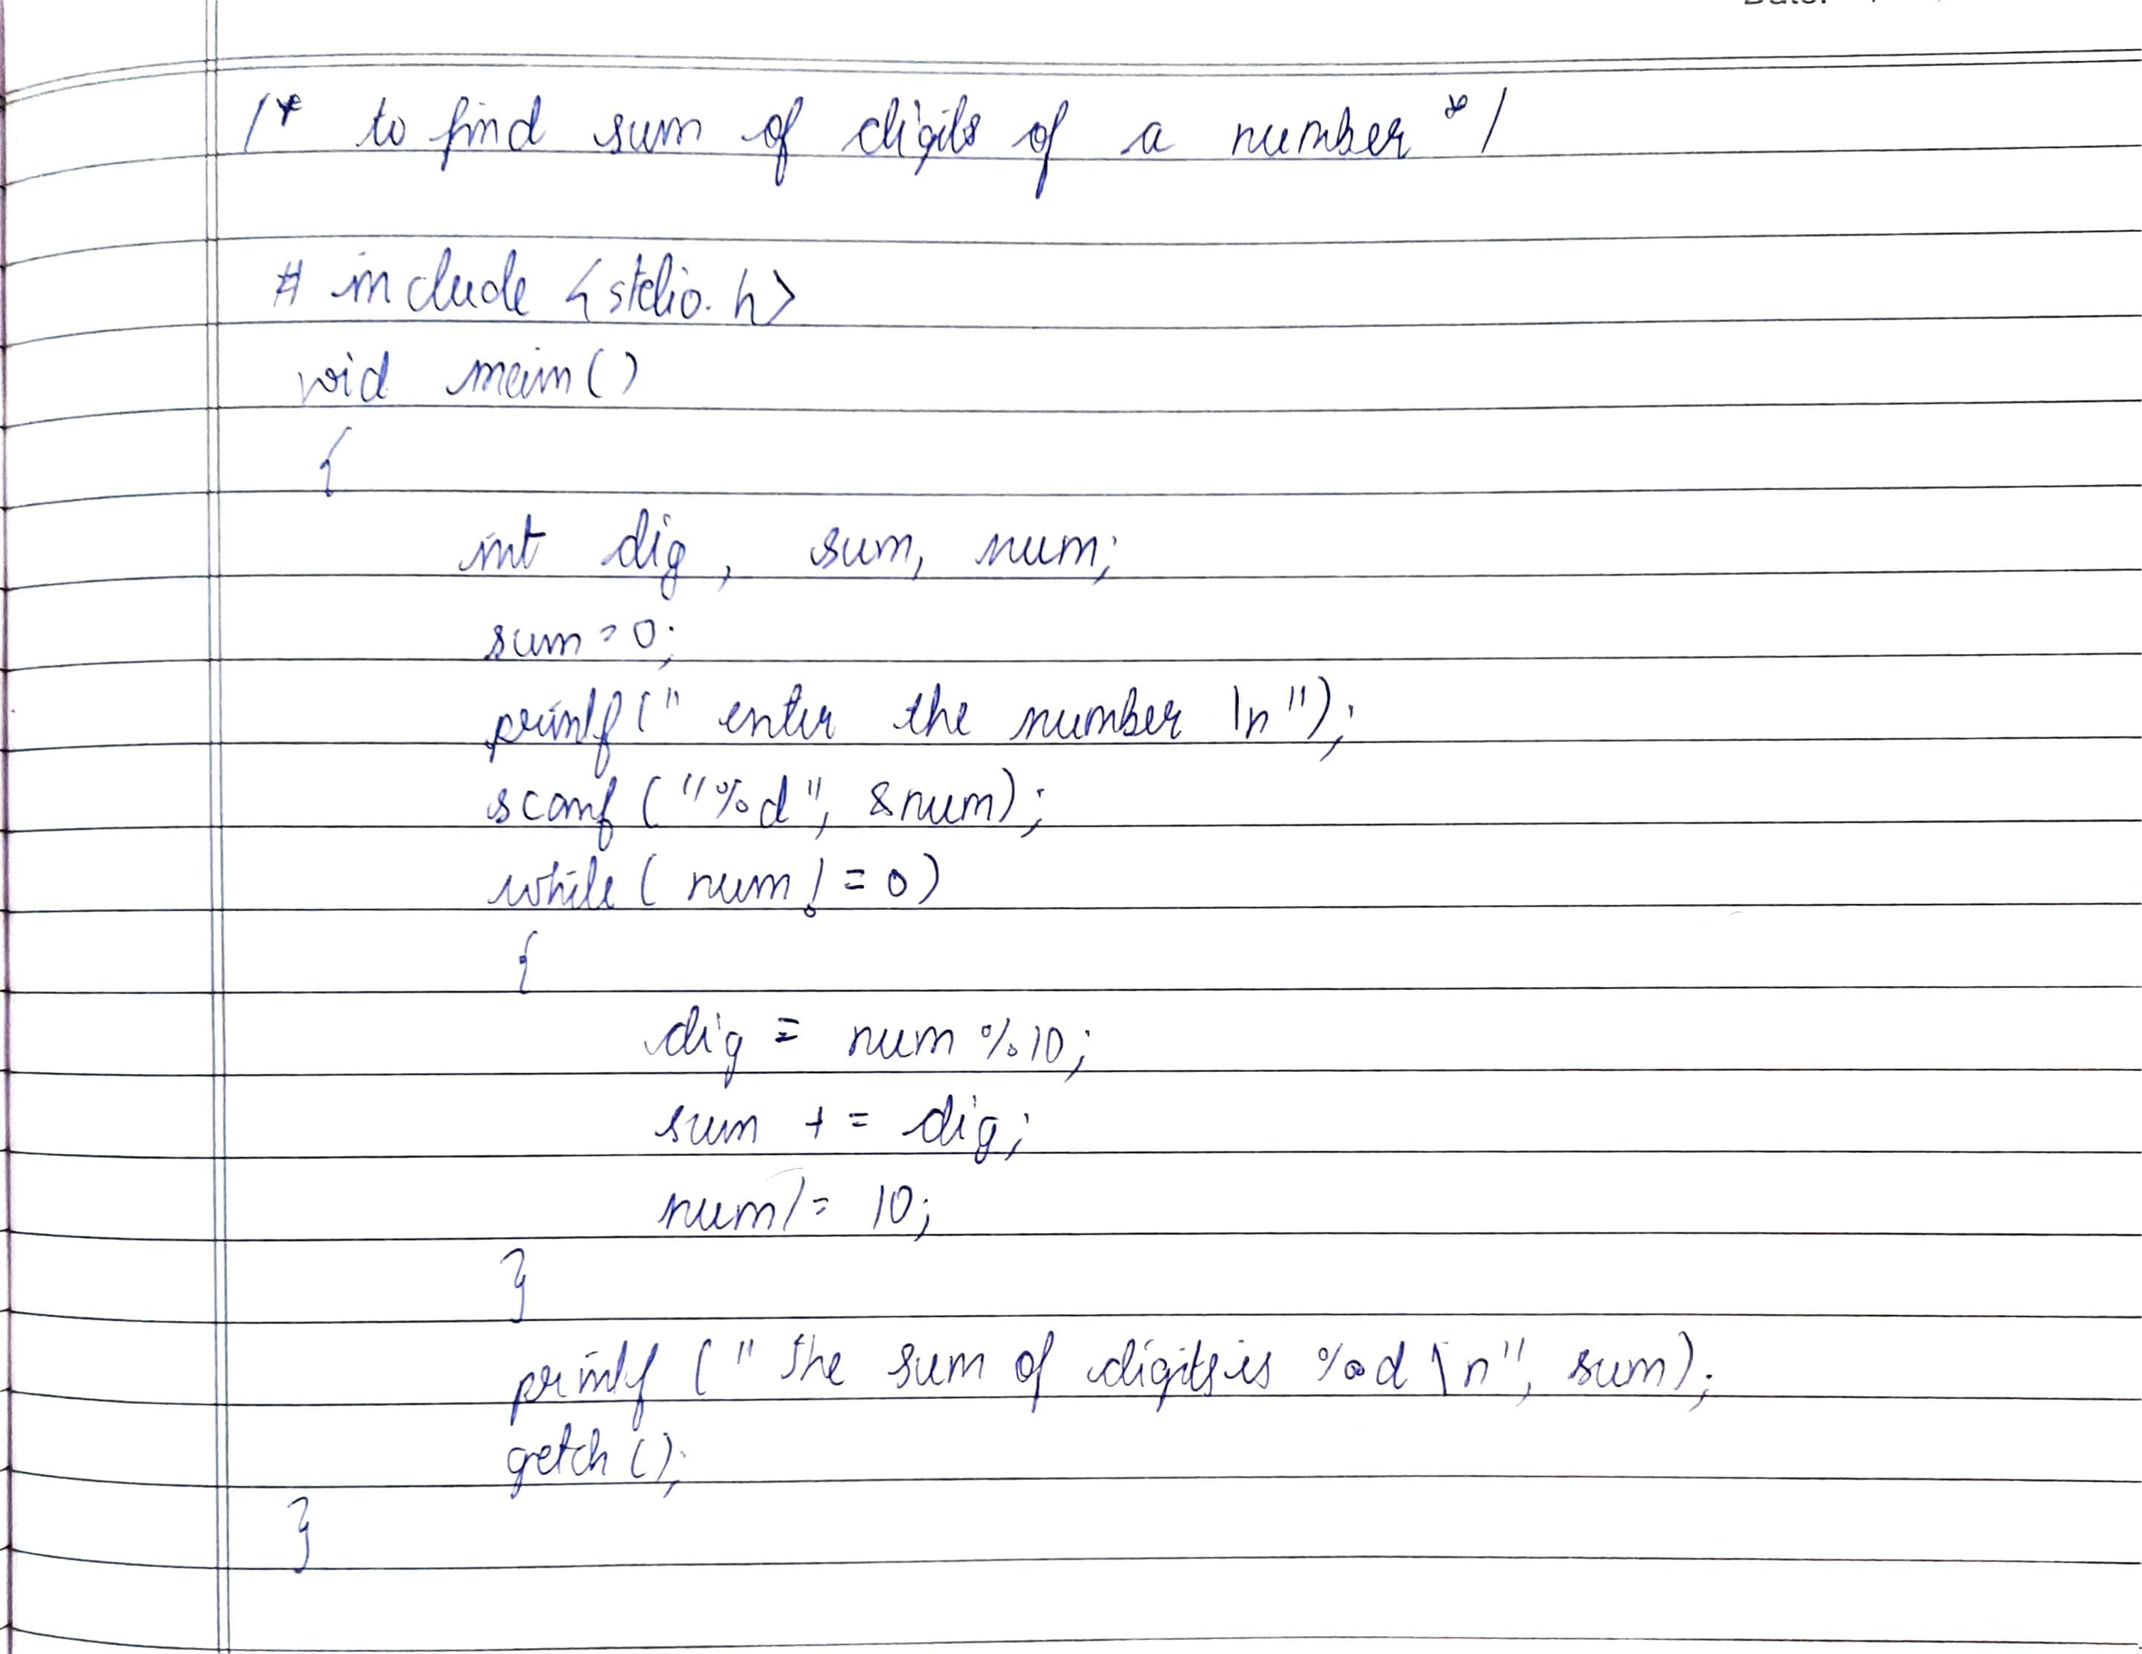 /* to find sum of digits of a number */
# include <stdio.h>
void main()
{
int dig, sum, num;
sum = 0;
printf(" enter the number \n");
scanf ("%d", &num);
while ( num != 0)
{
dig = num % 10;
sum += dig;
num /= 10;
}
printf (" the sum of digits is %d \n", sum);
getch ();
}